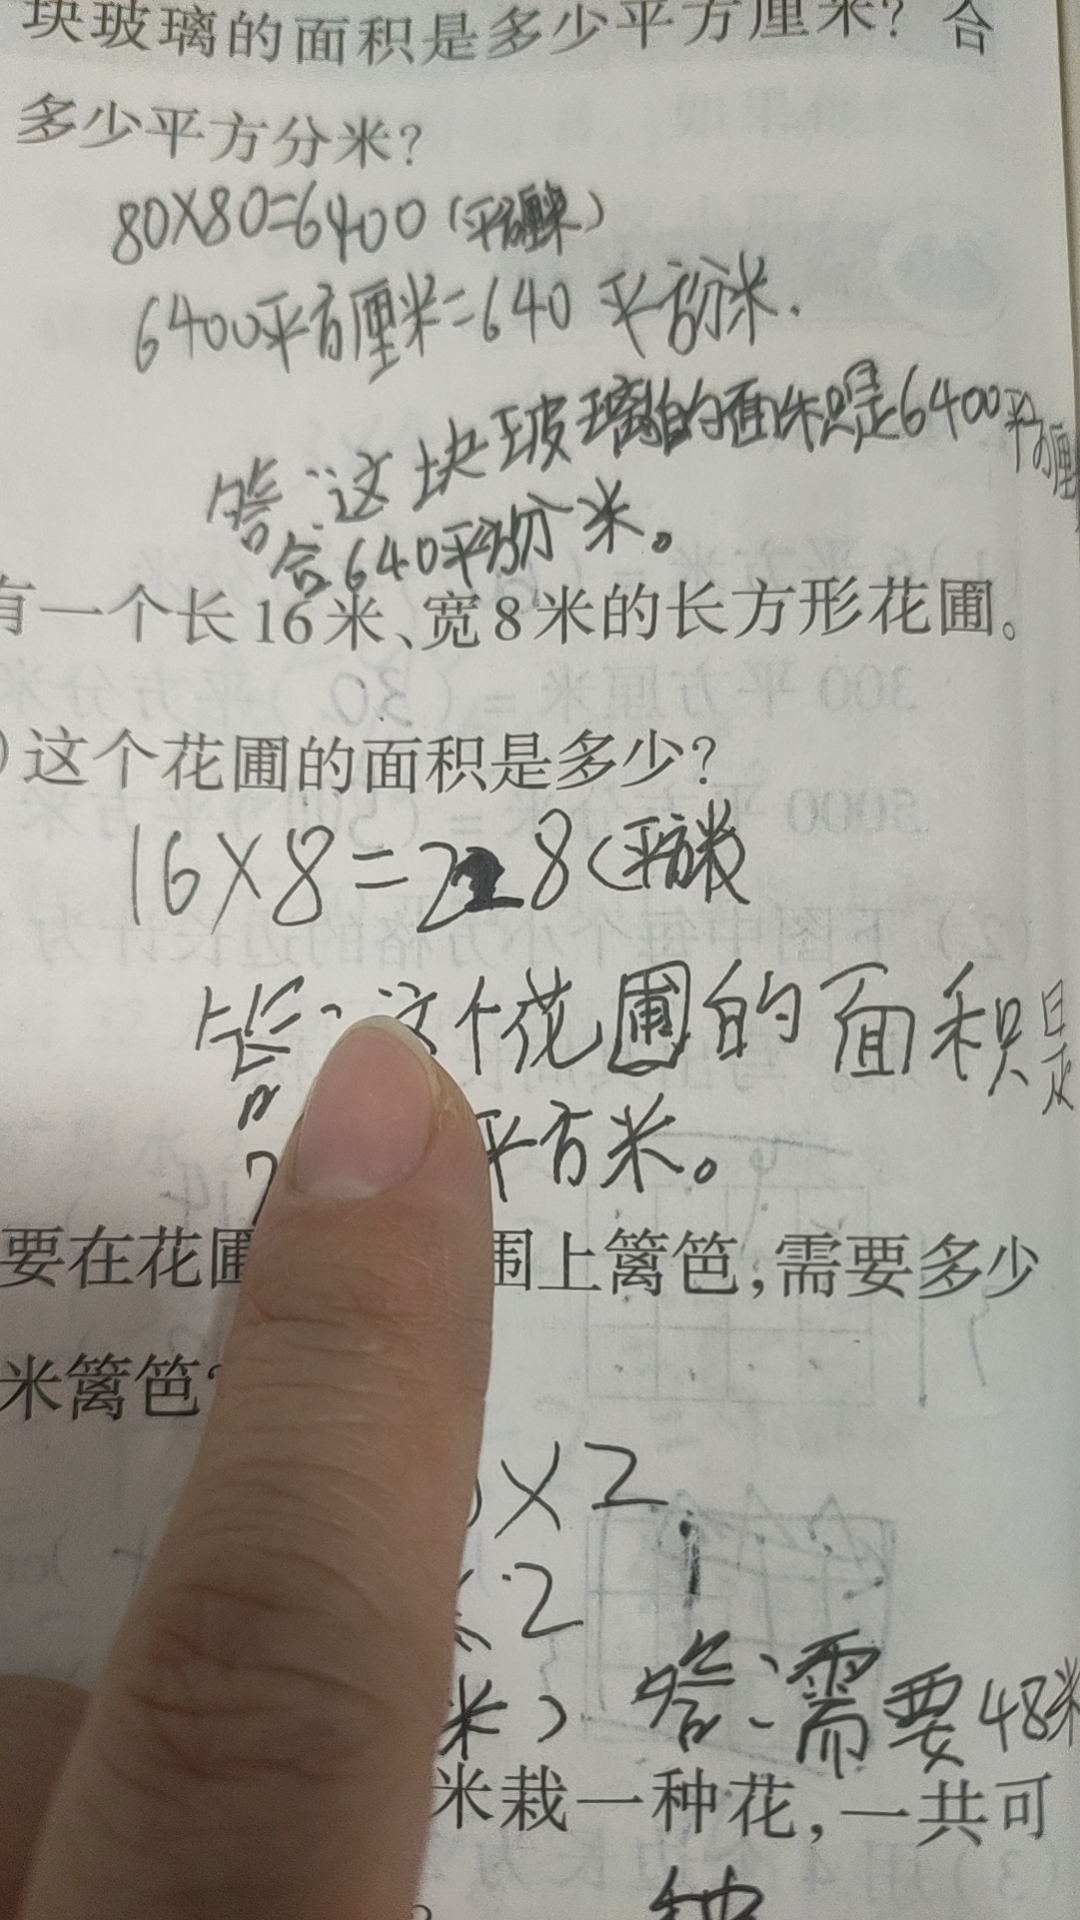 块玻璃的面积是多少平方厘米？合
多少平方分米？
80×80=6400（平方厘米）
6400平方厘米=640平方分米.
答：这块玻璃的面积是6400平方厘
合640平方分米。
有一个长16米、宽8米的长方形花圃。
）这个花圃的面积是多少？
16×8=228（平方米）
答：这个花圃的面积是
平方米。
要在花圃 围上篱笆，需要多少
米篱笆
×2
2
米） 答：需要48米
米栽一种花，一共可
种